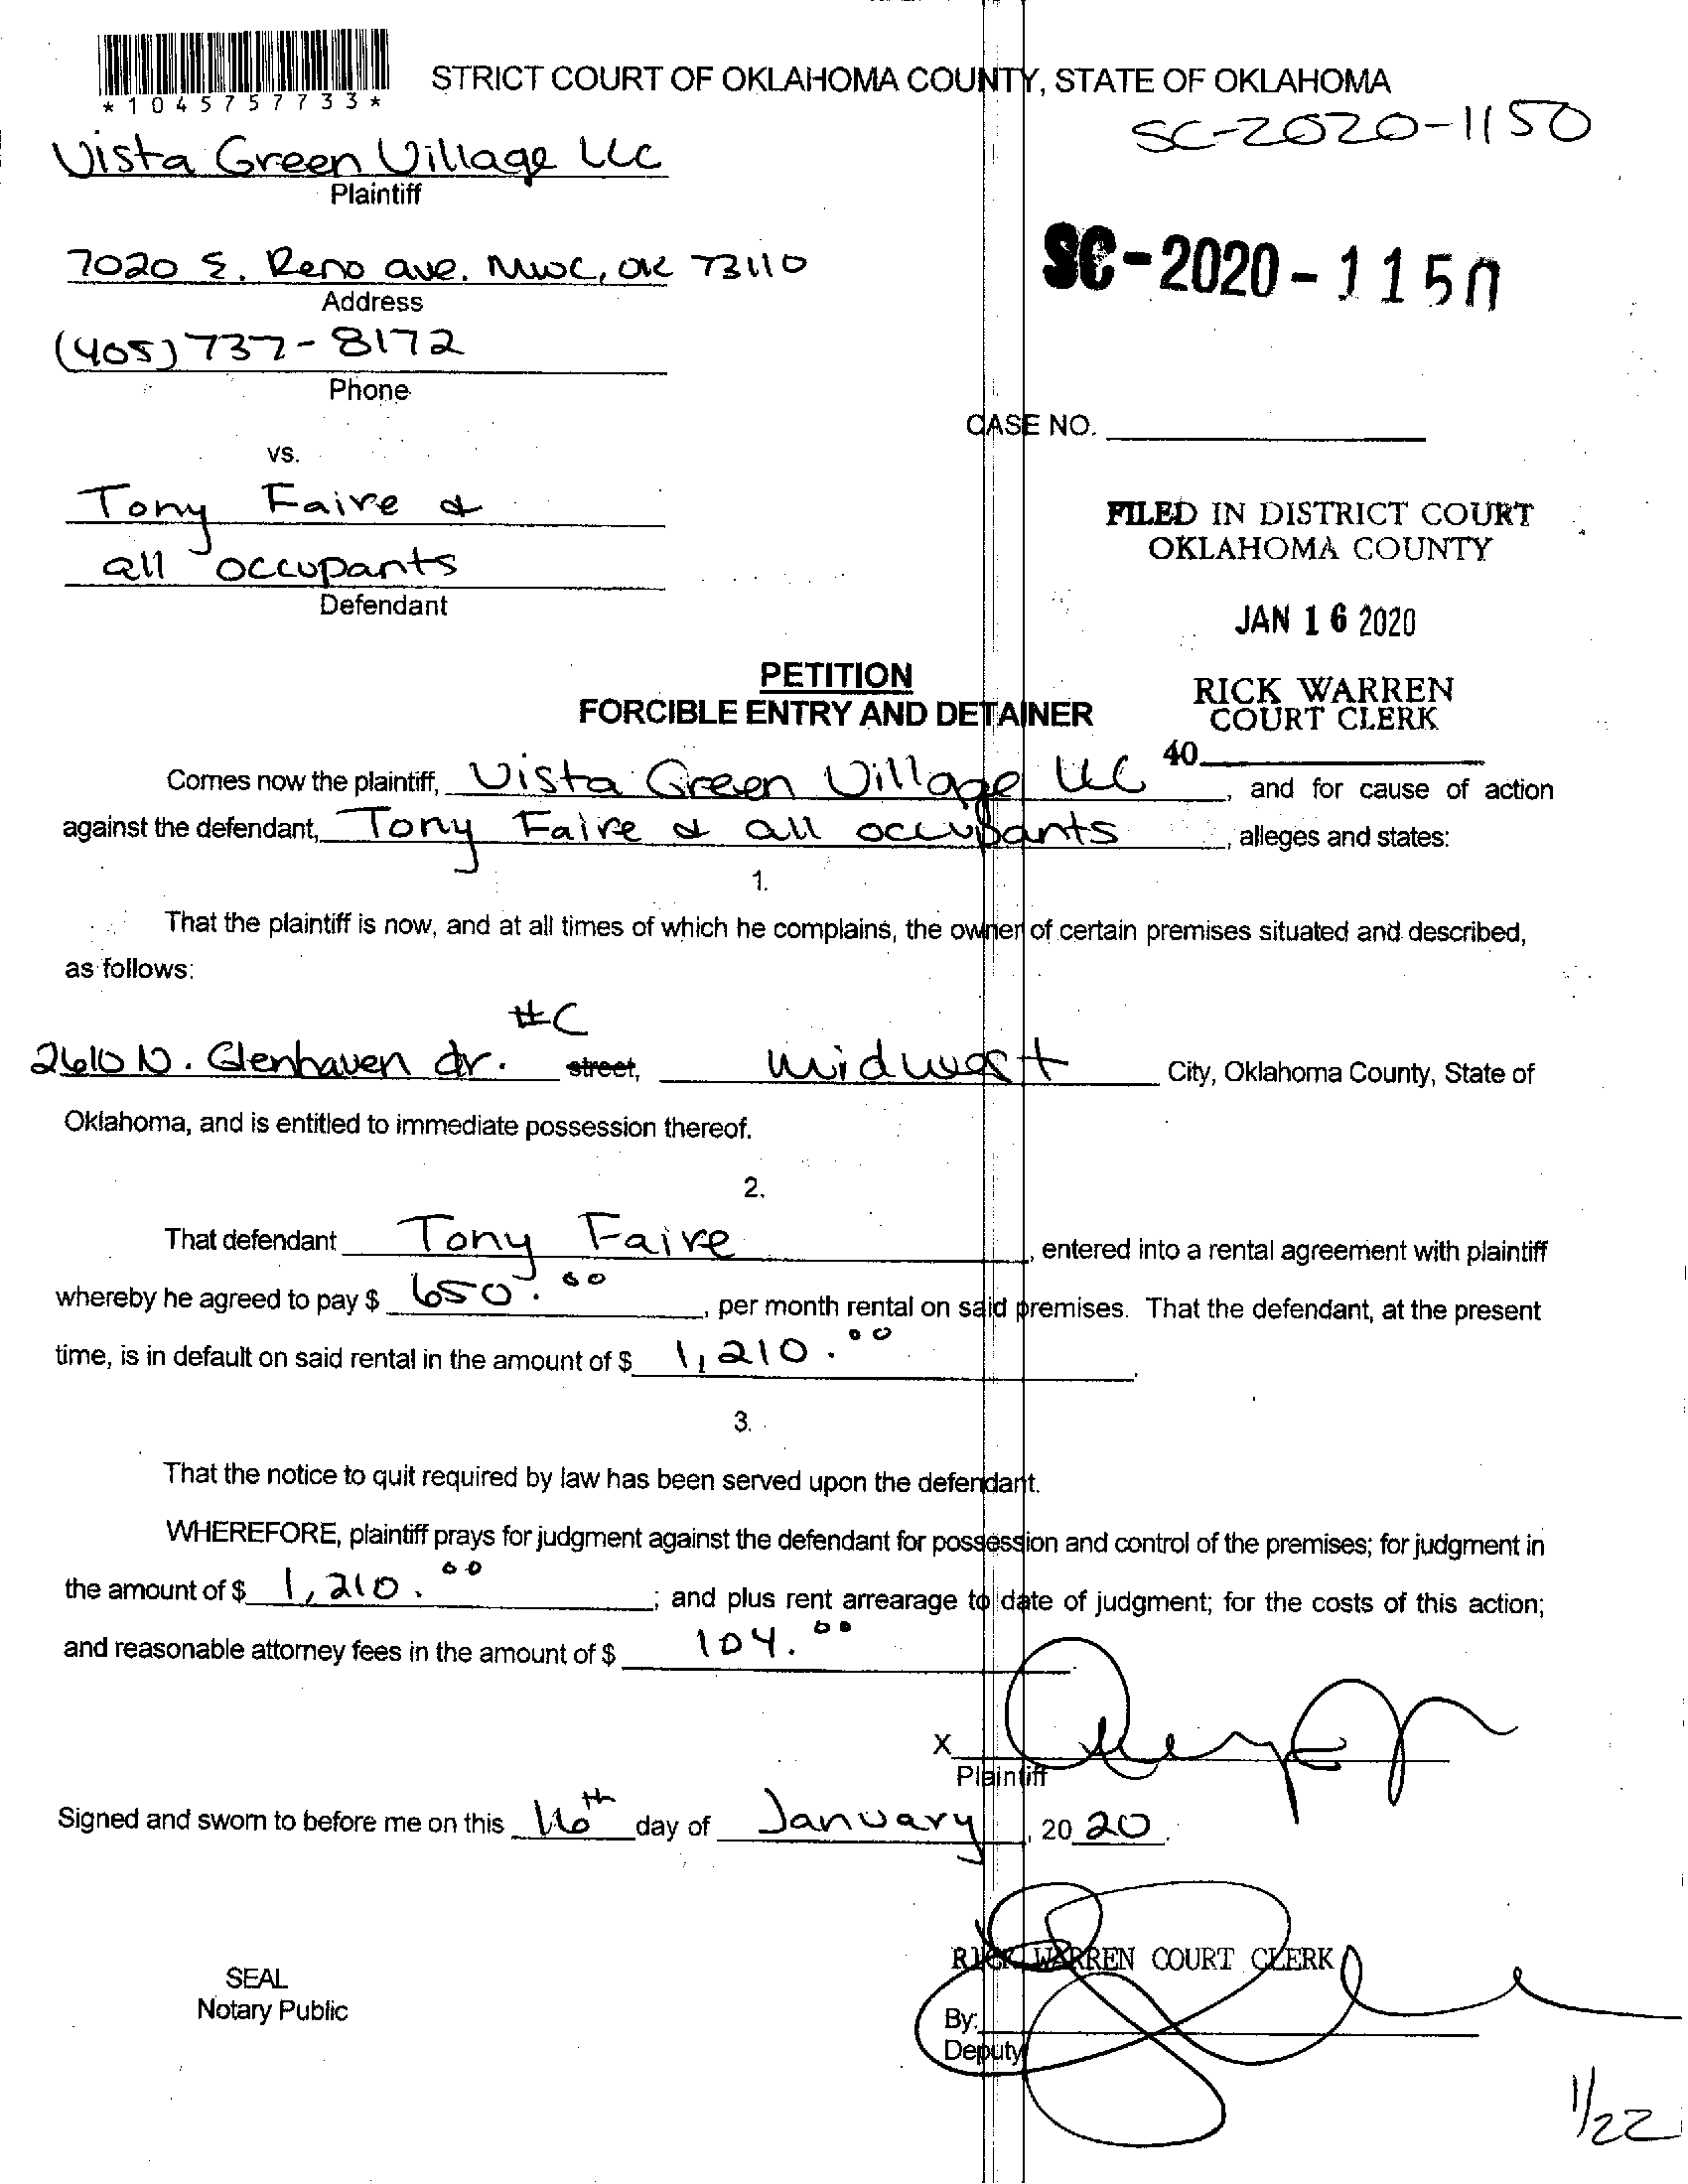 *1045757733*
STRICT COURT OF OKLAHOMA COUNTY, STATE OF OKLAHOMA
SC-2020-1150
Vista Green Village LLC
Plaintiff
7020 E. Reno ave. MWC, OK 73110
Address
SC-2020-1150
(405) 737-8172
Phone
CASE NO.
vs.
Tony Faire &
all occupants
Defendant
FILED IN DISTRICT COURT
OKLAHOMA COUNTY
JAN 16 2020
RICK WARREN
COURT CLERK
40
PETITION
FORCIBLE ENTRY AND DETAINER
Comes now the plaintiff, Vista Green Village LLC, and for cause of action
against the defendant, Tony Faire & all occupants, alleges and states:
1.
That the plaintiff is now, and at all times of which he complains, the owner of certain premises situated and described,
as follows:
#C
2610 N. Glenhaven dr. street, midwest City, Oklahoma County, State of
Oklahoma, and is entitled to immediate possession thereof.
2.
That defendant Tony Faire, entered into a rental agreement with plaintiff
whereby he agreed to pay $ 650.00, per month rental on said premises. That the defendant, at the present
time, is in default on said rental in the amount of $ 1,210.00.
3.
That the notice to quit required by law has been served upon the defendant.
WHEREFORE, plaintiff prays for judgment against the defendant for possession and control of the premises; for judgment in
the amount of $ 1,210.00; and plus rent arrearage to date of judgment; for the costs of this action;
and reasonable attorney fees in the amount of $ 104.00
X
Plaintiff
Signed and sworn to before me on this 16th day of January, 2020.
RICK WARREN COURT CLERK
SEAL
Notary Public
By:
Deputy
1/22